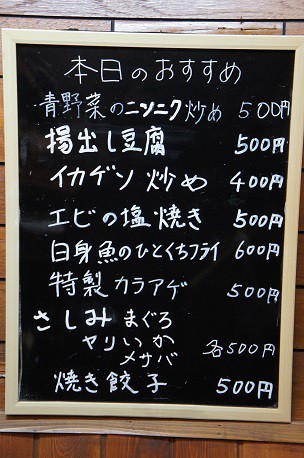 本日のおすすめ
青野菜のニンニク炒め 500円
揚出し豆腐 500円
イカゲソ炒め 400円
エビの塩焼き 500円
白身魚のひとくちフライ 600円
特製カラアゲ 500円
さしみ まぐろ
ヤリいか
メサバ 各500円
焼き餃子 500円